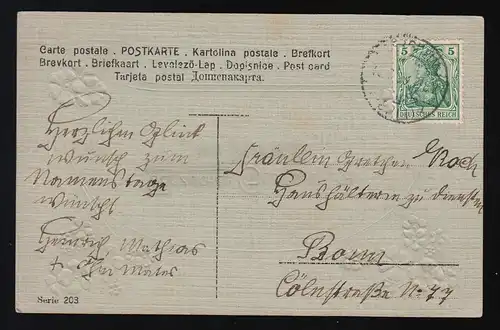 Carte postale . POSTKARTE . Kartolina postale . Brefkort
Brevkort . Briefkaart . Levelező-Lap . Dopisnice . Post card
Tarjeta postal
5 5
DEUTSCHES REICH
Herzlichen Glück
wunsch zum
Namenstage
wünscht
Heinrich Mathias
+
Fräulein Gretchen Koch
Haushälterin zu diensten
Bonn
Cölnstraße No 77
Serie 203